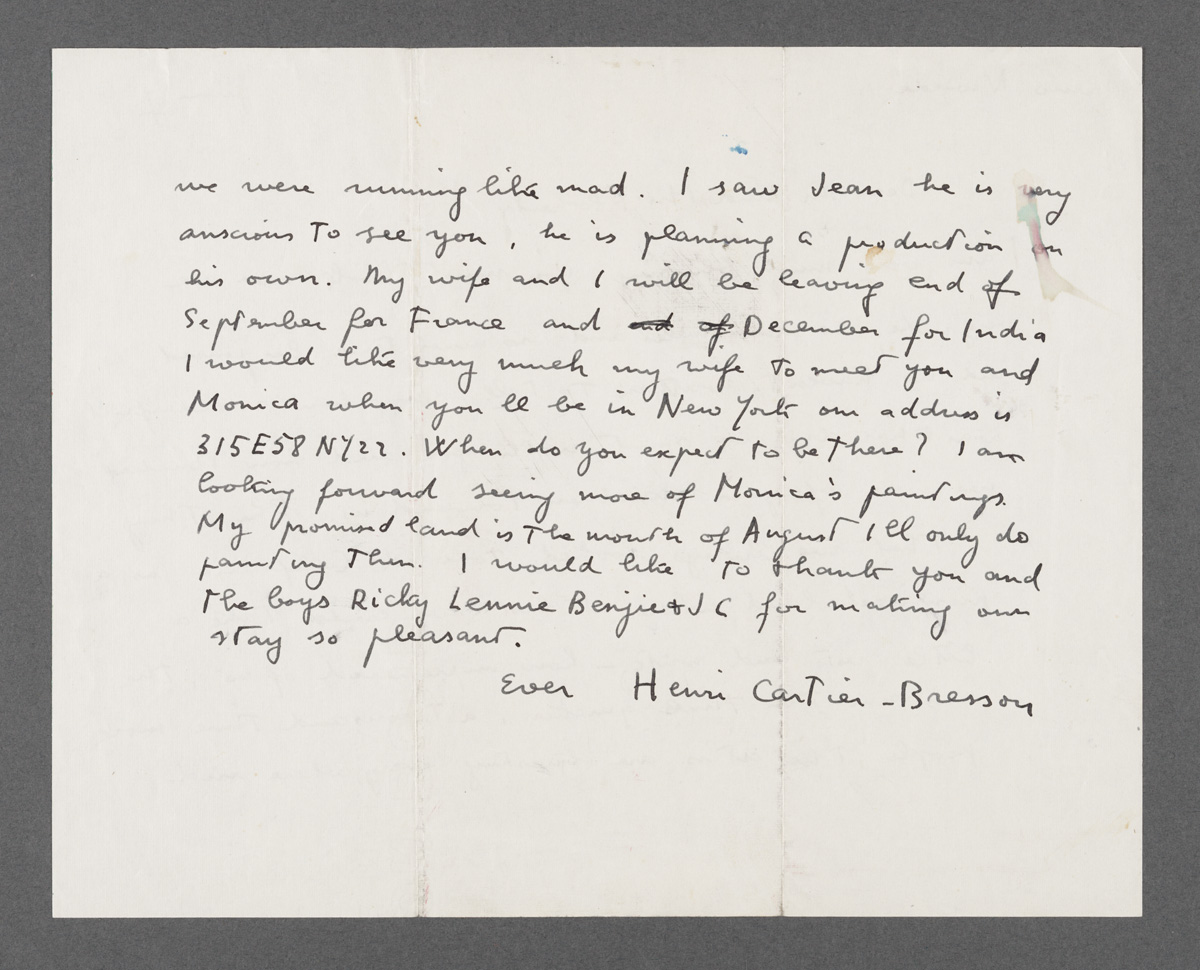 we were running like mad. I saw Jean he is very
anscious to see you, he is planning a production on
his own. My wife and I will be leaving end of
September for France and end of December for India
I would like very much my wife to meet you and
Monica when you ll be in New York our address is
315E58 NY22. When do you expect to be there? I am
looking forward seeing more of Monica's paintings.
My promised land is the month of August I ll only do
painting then. I would like to thank you and
the boys Ricky Lennie Benjie & J C for making our
stay so pleasant.
Ever Henri Cartier-Bresson